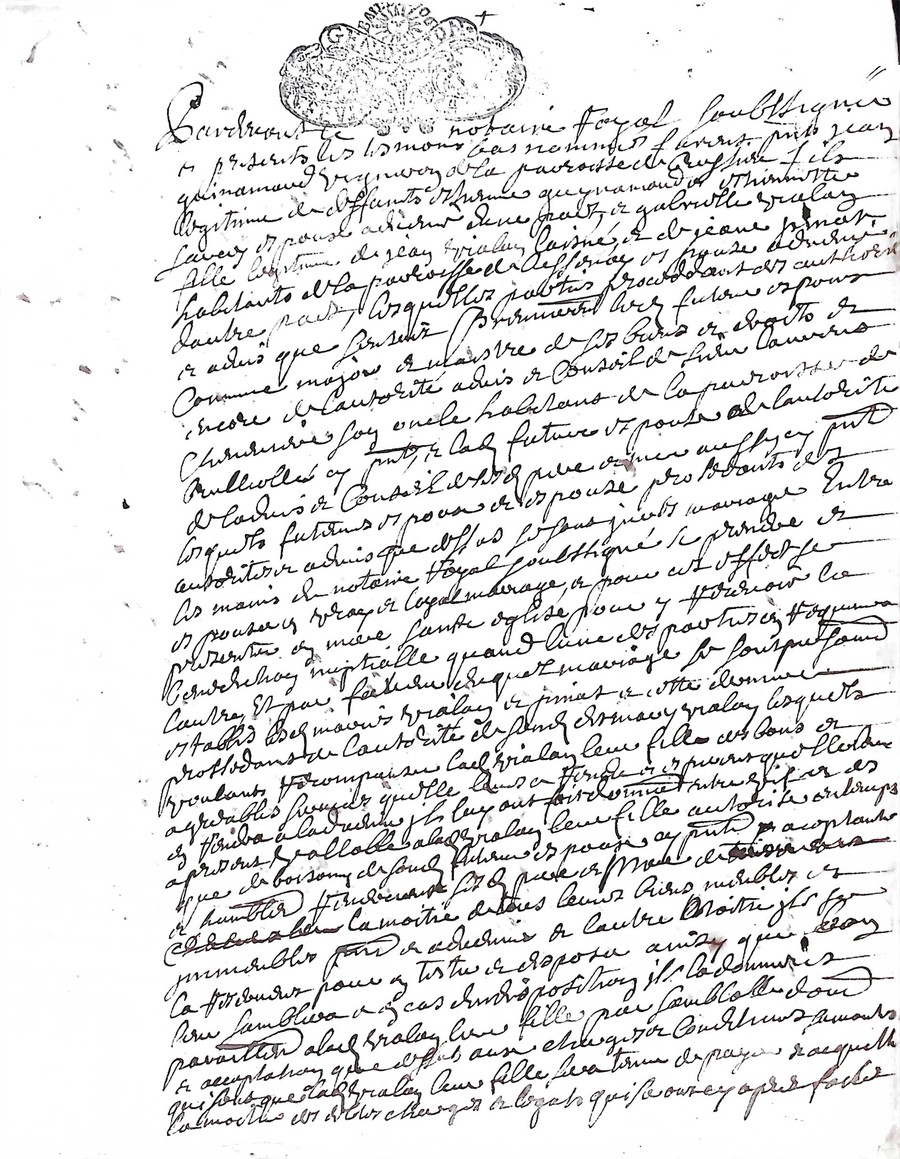 Pardevant le notaire Royal soubssigné
et presents les tesmoins bas nommes furent pnts jean
guinamand vigneron de la parroisse de fils
legitime de deffunts estienne guynamand et ethiennette
espoux advenir dune part, et gabrielle vialay
fille legitime de jean vialay laisné et de jeane pinat
habitants de la parroisse de espouse advenir
dautre part, lesquelles parties procederent des authorité
et advis que sensuit Premier led futur espoux
Comme majeur et maistre de ses biens et droits et
encore de lautorité advis et Conseil de
son oncle habitant de la parroisse de
en pnt, et lad future espouse de lautorité
de ladvis et Conseil desd pere et mere aussy en pnt
lesquels futurs espoux et espouse procedants des
autorités et advis que dessus se sont jurés mariage Entre
les mains du notaire Royal soubssigné se prendre et
espouser en vray et loyal mariage, et pour cet effect se
presenter en mere sainte eglise pour y recevoir la
benediction nuptialle quand lune des parties en requerra
lautre, Et par faveur duquel mariage se sont
establis lesd mariés vialay et pinat et cette derniere
procedant de lautorité de sond dit mary vialay lesquels
voulants recompenser lad vialay leur fille des bons et
agreables services quelle leurs a rendu et esperent quelle leur
en rendra a ladvenir ils luy ont fait donnation entre vifs et des
apresent vallable a lad vialay leur fille autorisé en temps
que de besoin de sond futur espoux en pnt et aceptante
et humblem remerciant sesd pere et mere de
la moitié de tous leurs biens meubles et
jmmeubles pnts et advenir et lautre Moitié ils se
la reservent pour en tester et disposer ainsy que bon
leur semblera et en cas dindisposition ils la donnent
pareillem a lad vialay leur fille par semblable dona
et acceptation que dessus aux charges et Conditions suivantes
qui sont que lad vialay leur fille sera tenue de payer et acquitter
la moitié des debtes charges et legats qui seront cy apres faits